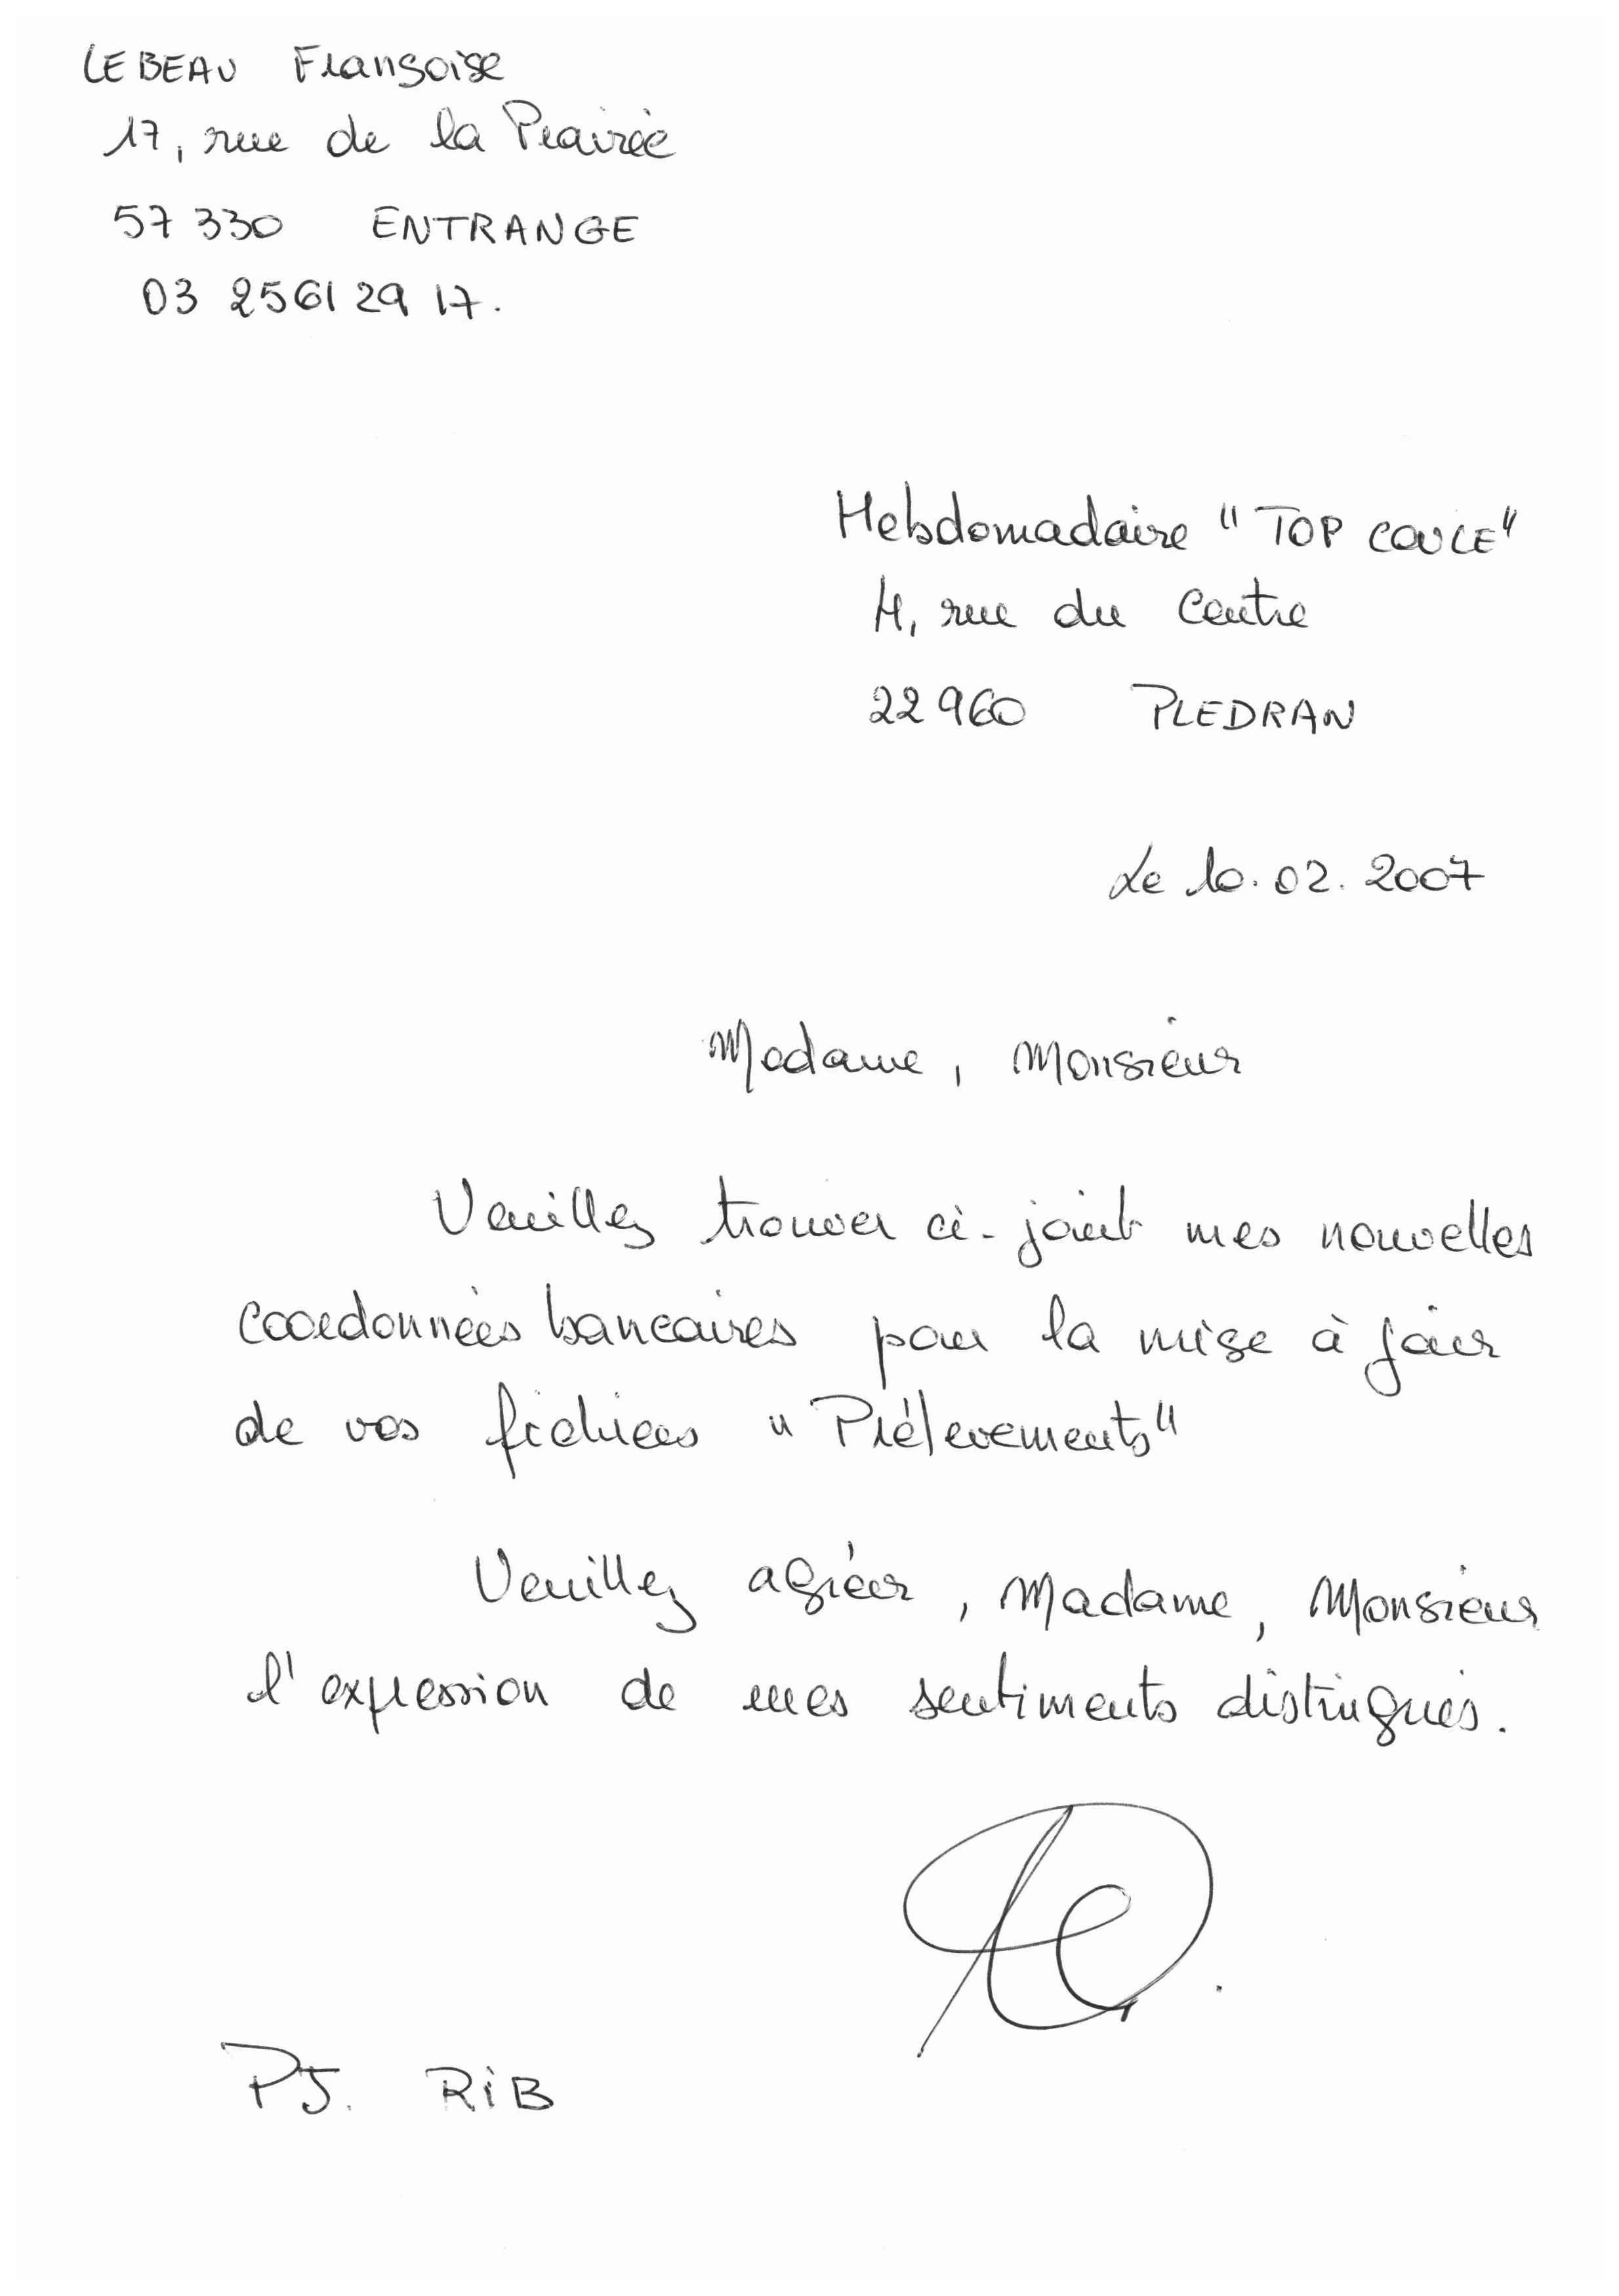 LEBEAU Françoise
17, rue de la Prairie
57 330 ENTRANGE
03 25 61 29 17.
Hebdomadaire "TOP COUCE"
4, rue du Centre
22 960 PLEDRAN
Le 10.02.2007
Madame, Monsieur
Veuillez trouver ci-joint mes nouvelles
coordonnées bancaires pour la mise à jour
de vos fichiers "Prélevements"
Veuillez agréer, Madame, Monsieur
l'expression de mes sentiments distingués.
PJ. RiB